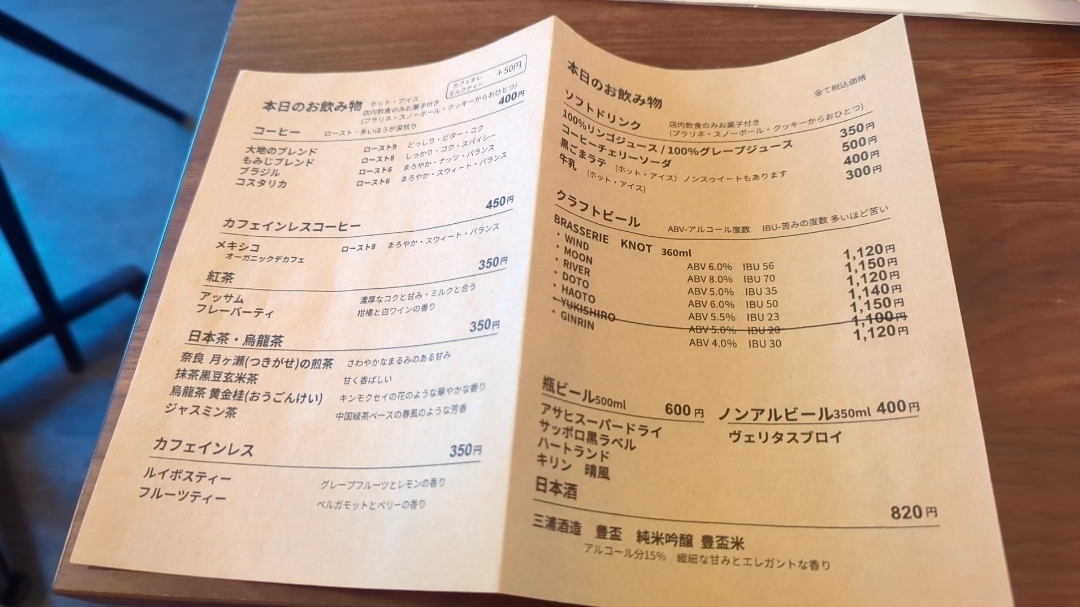 本日のお飲み物
ホット・アイス
店内飲食のみお菓子付き
(プラリネ・スノーボール・クッキーからおひとつ)
カフェオレ
ミルクティー +50円
コーヒー ロースト-多いほうが深煎り 400円
大地のブレンド ロースト9 どっしり・ビター・コク
もみじブレンド ロースト8 しっかり・コク・スパイシー
ブラジル ロースト6 まろやか・ナッツ・バランス
コスタリカ ロースト6 まろやか・スウィート・バランス
カフェインレスコーヒー 450円
メキシコ ロースト8 まろやか・スウィート・バランス
オーガニックデカフェ
紅茶 350円
アッサム 濃厚なコクと甘み・ミルクと合う
フレーバーティ 柑橘と白ワインの香り
日本茶・烏龍茶 350円
奈良 月ヶ瀬(つきがせ)の煎茶 さわやかなまるみのある甘み
抹茶黒豆玄米茶 甘く香ばしい
烏龍茶 黄金桂(おうごんけい) キンモクセイの花のような華やかな香り
ジャスミン茶 中国緑茶ベースの春風のような芳香
カフェインレス 350円
ルイボスティー グレープフルーツとレモンの香り
フルーツティー ベルガモットとベリーの香り
本日のお飲み物 全て税込価格
ソフトドリンク 店内飲食のみお菓子付き
(プラリネ・スノーボール・クッキーからおひとつ)
100%リンゴジュース / 100%グレープジュース 350円
コーヒーチェリーソーダ 500円
黒ごまラテ (ホット・アイス) ノンスゥイートもあります 400円
牛乳 (ホット・アイス) 300円
クラフトビール ABV-アルコール度数 IBU-苦みの度数 多いほど苦い
BRASSERIE KNOT 360ml
・WIND ABV 6.0% IBU 56 1,120円
・MOON ABV 8.0% IBU 70 1,150円
・RIVER ABV 5.0% IBU 35 1,120円
・DOTO ABV 6.0% IBU 50 1,140円
・HAOTO ABV 5.5% IBU 23 1,150円
・YUKISHIRO ABV 5.0% IBU 20 1,100円
・GINRIN ABV 4.0% IBU 30 1,120円
瓶ビール500ml 600円
アサヒスーパードライ
サッポロ黒ラベル
ハートランド
キリン 晴風
ノンアルビール350ml 400円
ヴェリタスブロイ
日本酒 820円
三浦酒造 豊盃 純米吟醸 豊盃米
アルコール分15% 繊細な甘みとエレガントな香り